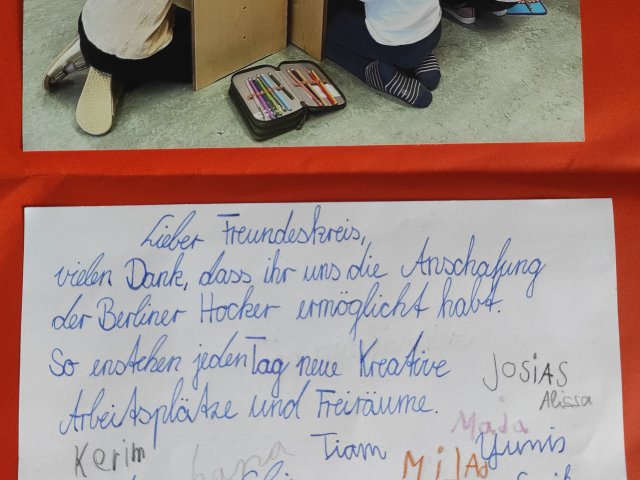 Lieber Freundeskreis,
vielen Dank, dass ihr uns die Anschafung
der Berliner Hocker ermöglicht habt.
So enstehen jeden Tag neue Kreative
Arbeitsplätze und Freiräume.
JOSiAS
Alissa
Maja
Kerim
Tiam
Yunis